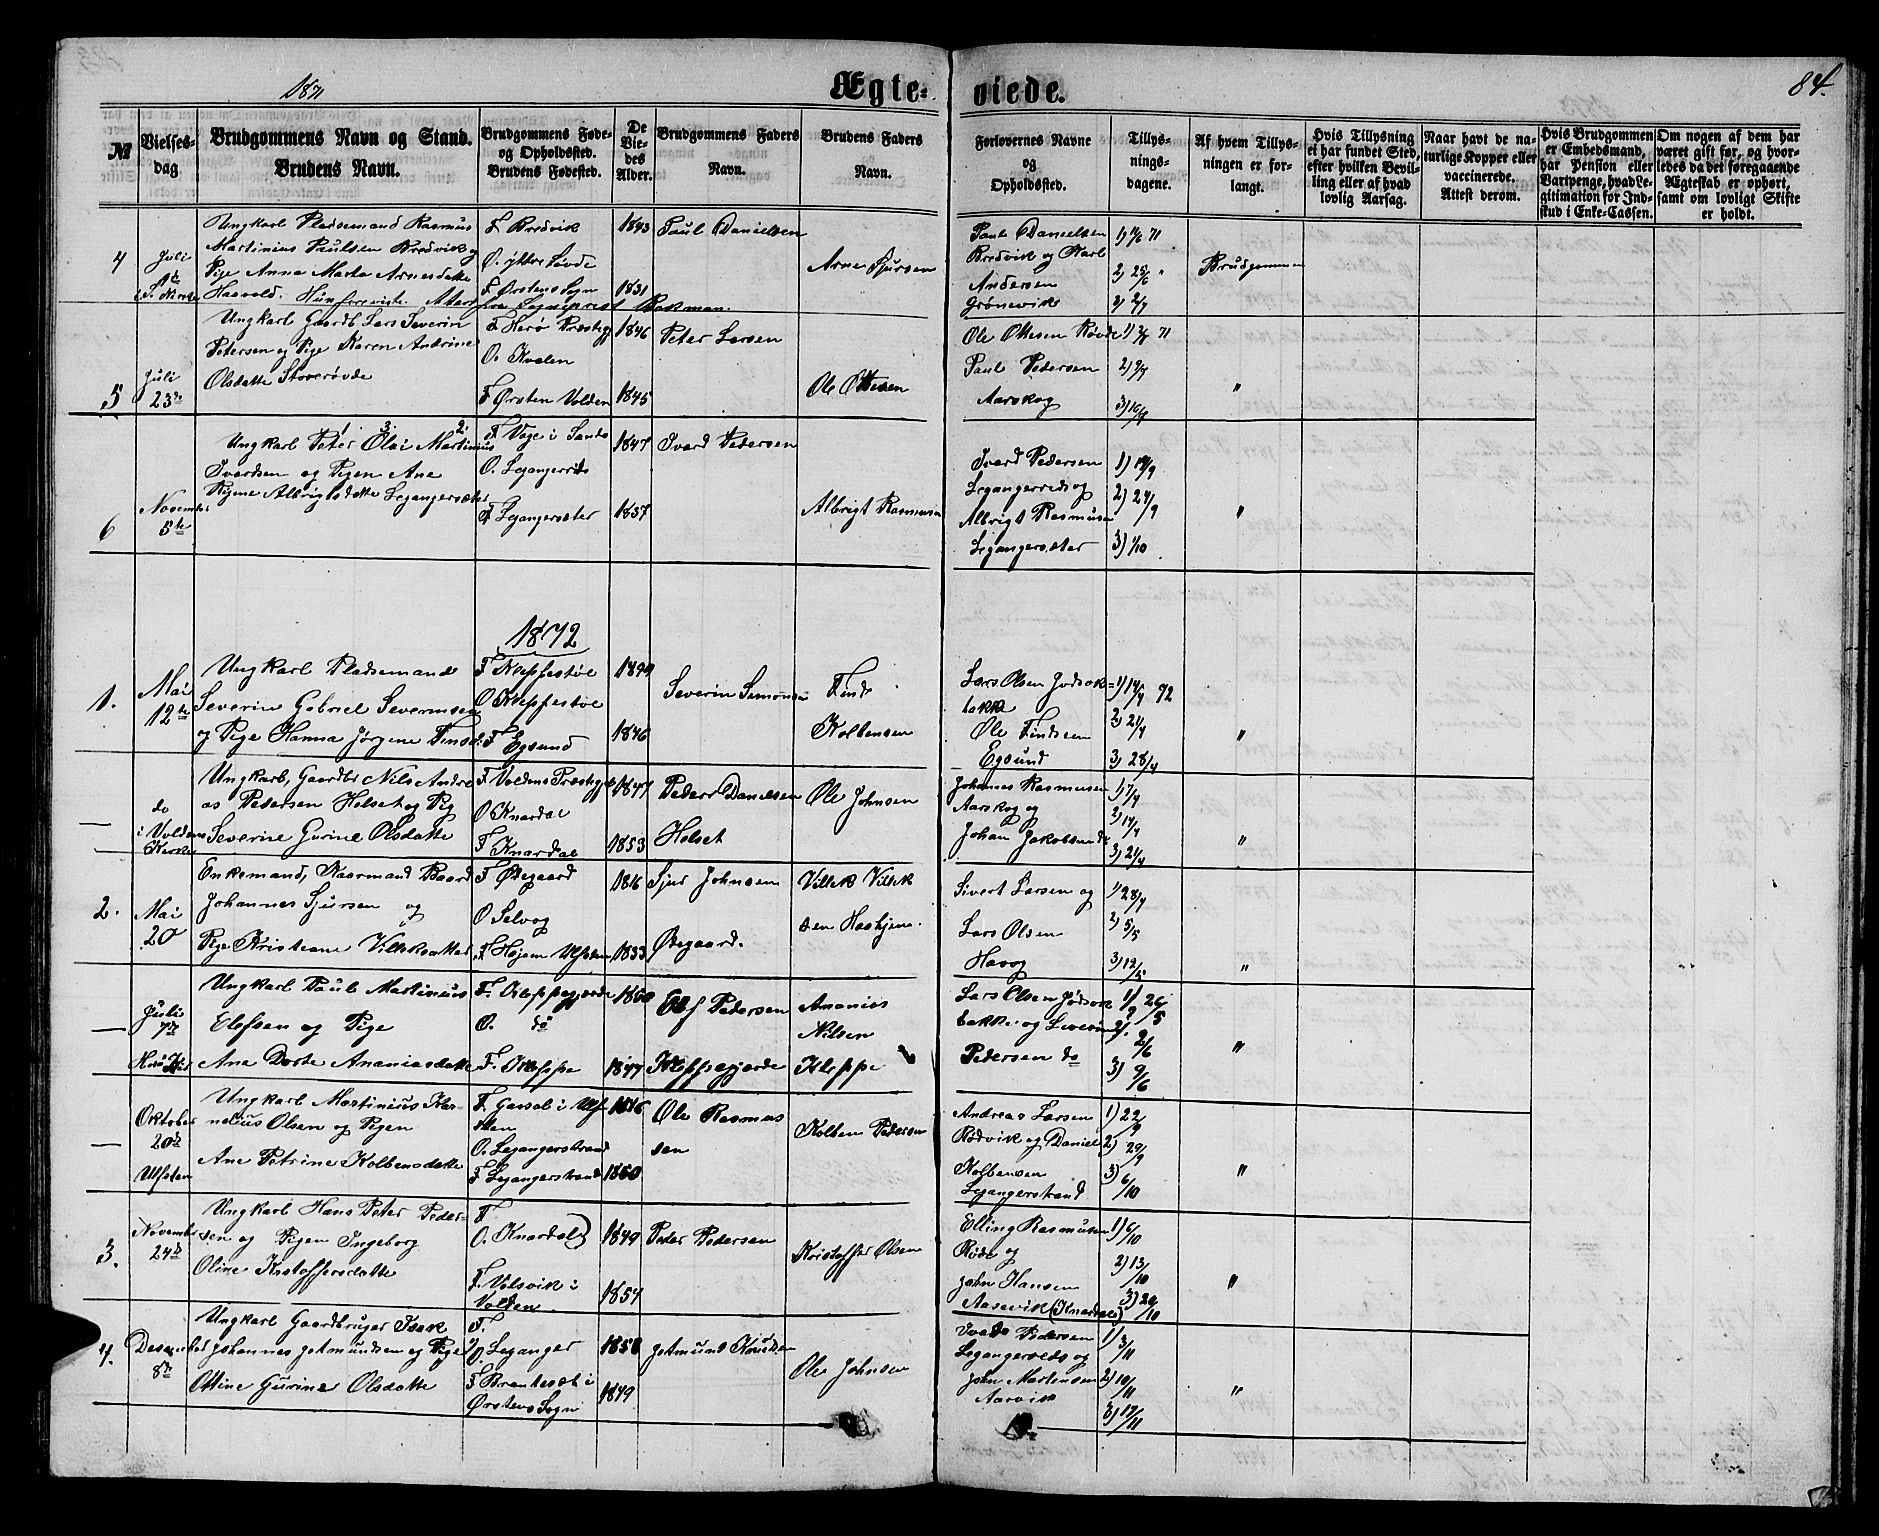 1871
Ægte-
viede.
84.
№
Vielses-
dag
Brudgommens Navn og Stand.
Brudens Navn.
Brudgommens Føde-
og Opholdssted.
Brudens Fødested.
De
Vie-
des
Alder.
Brudgommens Faders
Navn.
Brudens Faders
Navn.
Forlovernes Navne
og
Opholdssted.
Tillys-
nings-
dagene.
Af hvem Tillys-
ningen er for-
langt.
Hvis Tillysning
ei har fundet Sted,
efter hvilken Bevil-
ling eller af hvad
lovlig Aarsag.
Naar havt de na-
turlige Kopper eller
vaccinerede.
Attest derom.
Hvis Brudgommen
er Embedsmand,
har Pension eller
Vartpenge, hvad Le-
gitimation for Ind-
skud i Enke-Cassen.
Om nogen af dem har
været gift før, og hvor-
ledes da det foregaaende
Ægteskab er ophørt,
samt om lovligt Skifte
er holdt.
4
Juli
Ungkarl Pladsemand Rasmus
Martinius Paulsen Bredvik og
Pige Anna Marta Arnesdatte
Haavold.
F. Bredvik
O. yttre Løvde
F. Ørstens Sogn
1843
1831
Paul Danielsen
Arne Sjursen
Paul Danielsen
Bredvik og Karl
Andersen
Grønevik
1) 18/6 71
2) 25/6 "
3) 2/7
Brudgommen
5
Juli
23de
Ungkarl Gaardb. Lars Severin
Petersen og Pige Karen Andrine
Olsdatte Storerøvde
F. Herø Præstegj
O. Kvalen
F. Ørsten Volden
1846
1845
Peter Larsen
Ole Ottesen
Ole Ottesen Røvde
Paul Pedersen
Aarskog
1) 2/7 71
2) 9/7
3) 16/7
"
6
November
5te
Ungkarl Peter Olai Martinius
Ivardsen og Pigen Ane
Rigine Albrigtsdatte Legangersæter
F. Vage i Sande
O. Legangereids
F. Legangersæter
1847
1837
Ivard Pedersen
Albrigt Rasmusen
Ivard Pedersen
Legangereids og
Albrigt Rasmusen
Legangersæter
1) 17/9
2) 24/9
3) 1/10
"
1872
1.
Mai
12te
Ungkarl Pladsemand
Severin Gabriel Severinsen
og Pige Hanna Jørgine Finsd:
F. Kleppestøl
O. Kleppestøl
F. Egsund
1846
Severin Simonsen
Find
Kolbensen
Lars Olsen Jødsok=
bakke
Ole Findsen
Egsund
1) 14/4 72
2) 21/4
3) 28/4
"
—
do
i Voldens
Kirke
Ungkarl, Gaardbr Nils Andre
as Pedersen Helset og Pig
Severine Gurine Olsdatte
F. Voldens Præstegje
O. Knardal
F. Knardal
1847
1853
Peder Danielsen
Helset
Ole Johnsen
Johannes Rasmusen
Aarskog og
Johan Jakobsen do
1) 7/4
2) 14/4
3) 21/4
"
2.
Mai
20
Enkemand, Kaarmand Baard
Johannes Sjursen og
Pige Kristiane Villiksdatter
F. Ødegaard
O. Selvog
F. Højem Ulfsten
1816
1833
Sjur Johnsen
Ødegaard.
Villik Villik
sen
Sivert Larsen og
Lars Olsen
Havog
1) 28/4
2) 5/5
3) 12/5
"
—
Juli
7de
Ungkarl Paul Martinius
Elefsen og Pige
Ane Dorte Ananiasdatte
F. Kleppegjærde
O. do
F. Kleppe
1850
1847
Elef Pedersen
Kleppegjerde
Ananias
Nilsen
Kleppe
Lars Olsen Jødsok
bakke og Severin
Pedersen do
1) 26/5
2) 2/6
3) 9/6
"
—
Oktober
20de
Ulfsten
Ungkarl Martinius Kor-
nelius Olsen og Pigen
Ane Petrine Kolbensdatte
F. Garsol i Ulf-
sten
O. Legangerstrand
F. Legangerstrand
1846
1850
Ole Rasmus
sen
Kolben Pedersen
Andreas Larsen
Rødvik og Daniel
Kolbensen
Legangerstrand
1) 22/9
2) 29/9
3) 6/10
"
3.
November
24de
Ungkarl Hans Peter Peder-
sen og Pigen Ingeborg
Oline Kristoffersdatte
F.
O. Knardal
F. Velsvik i
Volden
1849
1854
Peder Pedersen
Kristoffer Olsen
Elling Rasmusen
Røde og
John Hansen
Aasevik (Knardal)
1) 6/10
2) 13/10
3) 20/10
"
4.
Desember
8de
Ungkarl Gaardbruger Isak
Johannes Jetmundsen og Pige
Ottine Gurine Olsdatte
F.
O. Leganger
F. Brautesæt i
Ørstens Sogn
1858
1849
Jetmund Knudsen
Ole Johnsen
Ivar Pedersen
Legangereids og
John Martensen
Aarvik
1) 3/11
2) 10/11
3) 17/11
"